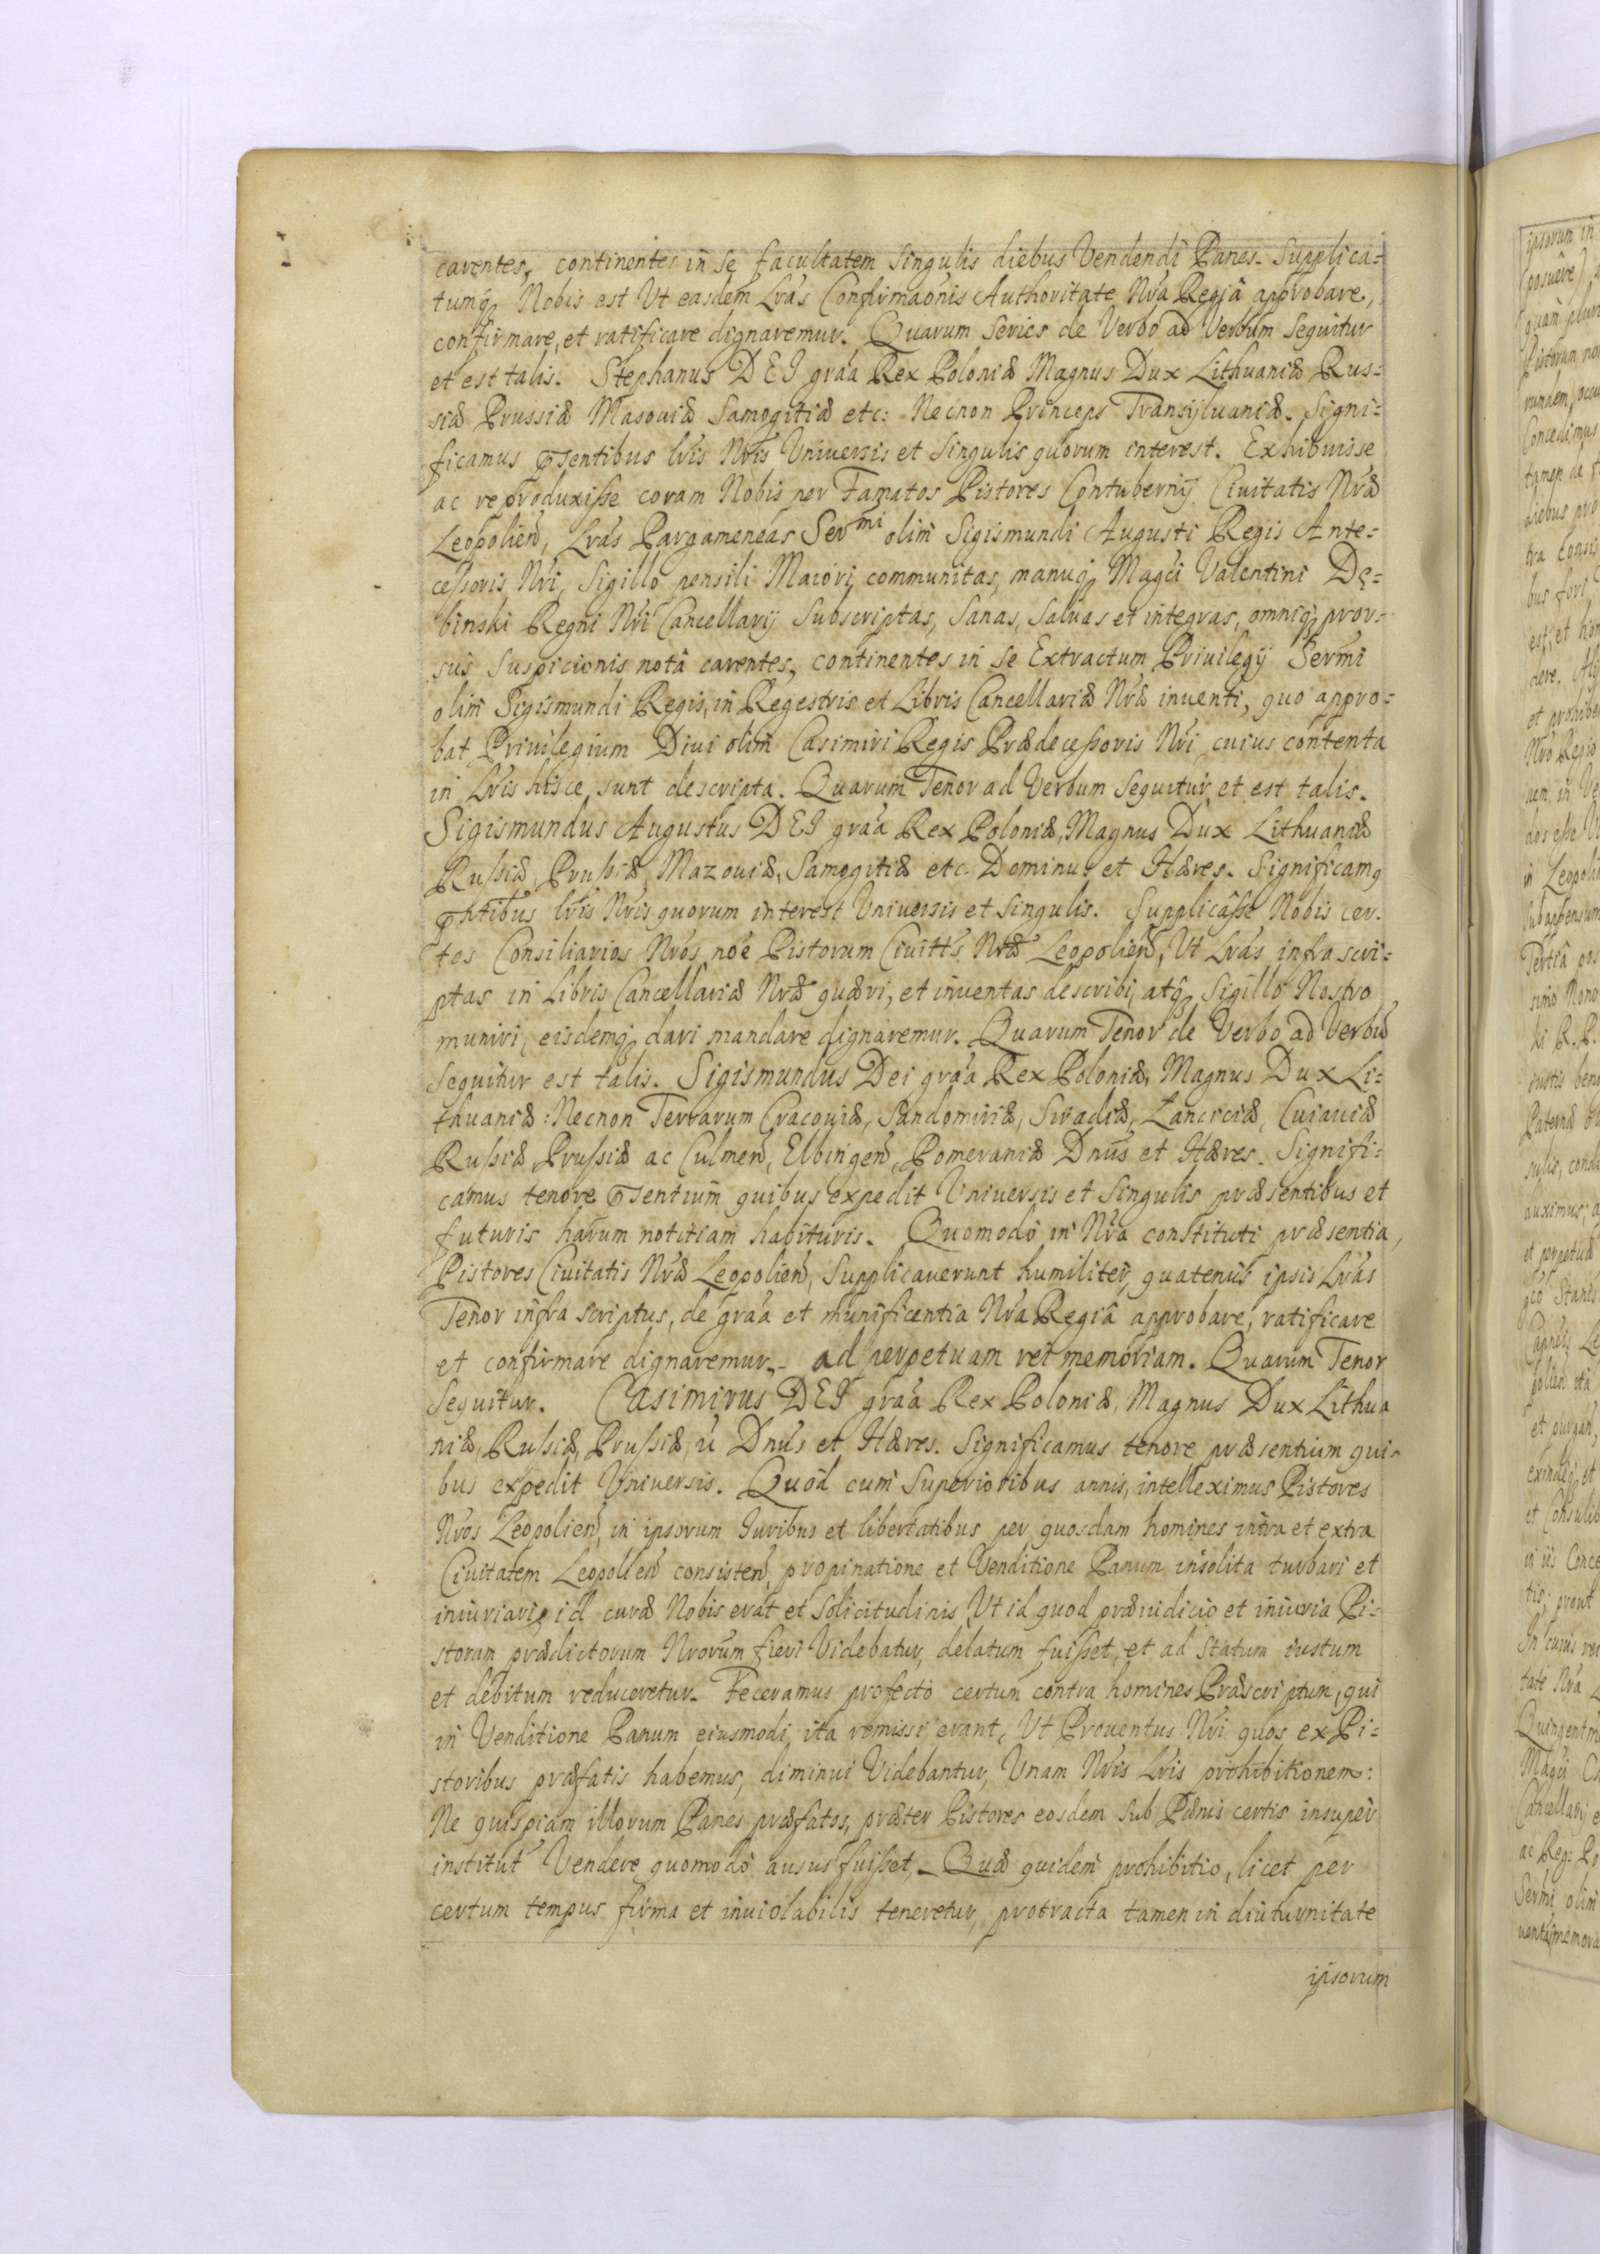 caventes, continentes in se facultatem singulis diebus Vendendi Panes. Supplica-
tumq; Nobis est Ut easdem Lrás Confirmaõnis Authoritate Nrâ Regiâ approbare,
confirmare, et ratificare dignaremur. Quarum Series de Verbo ad Verbum Sequitur
et est talis. Stephanus DEI gráa Rex Poloniæ Magnus Dux Lithuaniæ Rus-
siæ Prussiæ Masouiæ Samogitiæ etc: Necnon Princeps Transyluaniæ. Signi-
ficamus Psentibus lris Nris Uniuersis et Singulis quorum interest. Exhibuisse
ac reproduxisse coram Nobis per Famatos Pistores Contubernij Ciuitatis Nræ
Leopolien̄, Lrás Pargameneas Serᵐⁱ olim Sigismundi Augusti Regis Ante-
cessoris Nri, Sigillo pensili Maiori communitas, manuq; Magci Valentini Dę-
binski Regni Nri Cancellarij Subscriptas, Sanas, Saluas et integras, omniq; pror-
sus Suspicionis notâ carentes, continentes in se Extractum Priuilegij Sermi
olim Sigismundi Regis, in Regestris et Libris Cancellariæ Nræ inuenti, quo appro-
bat Priuilegium Diui olim Casimiri Regis Prædecessoris Nri cuius contenta
in Lris hisce sunt descripta. Quarum Tenor ad Verbum Sequitur et est talis.
Sigismundus Augustus DEI gráa Rex Poloniæ, Magnus Dux Lithuaniæ
Russiæ, Prussiæ, Mazouiæ, Samogitiæ etc. Dominus et Hæres. Significamꝰ
Pntibus lris Nris quorum interest Uniuersis et Singulis. Supplicâsse Nobis cer-
tos Consiliarios Nros noe Pistorum Ciuittis Nræ Leopolien̄, Ut Lrás infra scri-
ptas in Libris Cancellariæ Nræ quæri, et inuentas describi, atq; Sigillo Nostro
muniri, eisdemq; dari mandare dignaremur. Quarum Tenor de Verbo ad Verbū
Sequitur est talis. Sigismundus Dei gráa Rex Poloniæ, Magnus Dux Li-
thuaniæ: Necnon Terrarum Cracouiæ, Sandomiriæ, Siradiæ, Lanciciæ, Cuiauiæ
Russiæ Prussiæ ac Culmen̄, Elbingen̄, Pomeraniæ Dnus et Hæres. Signifi-
camus tenore Psentium quibus expedit Uniuersis et Singulis præsentibus et
futuris harum notitiam habituris. Quomodo in Nra constituti præsentia,
Pistores Ciuitatis Nræ Leopolien̄, Supplicauerunt humiliter, quatenus ipsis Lrás
Tenor infra scriptus, de gráa et munificentia Nra Regiâ approbare, ratificare
et confirmare dignaremur. ad perpetuam rei memoriam. Quarum Tenor
Sequitur. Casimirus DEI gráa Rex Poloniæ, Magnus Dux Lithua
niæ, Russiæ, Prussiæ, ū Dnus et Hæres. Significamus tenore præsentium qui-
bus expedit Uniuersis. Quod cum Superioribus annis, intelleximus Pistores
Nros Leopolien̄, in ipsorum Iuribus et libertatibus per quosdam homines intra et extra
Ciuitatem Leopolien̄ consisten̄, propinatione et Venditione Panum insolita turbari et
iniuriari, id curæ Nobis erat et Solicitudinis, Ut id quod præiudicio et iniuria Pi-
storum prædictorum Nrorum fieri Videbatur, delatum fuisset, et ad Statum iustum
et debitum reduceretur. Feceramus profecto certum contra homines Præscriptum, qui
in Venditione Panum eiusmodi ita remissi erant, Ut Prouentus Nri quos ex Pi-
storibus præfatis habemus, diminui Videbantur, Unam Nris Lris prohibitionem:
Ne quispiam illorum Panes præfatos, præter Pistores eosdem sub Pœnis certis insuper
institut Vendere quomodo ausus fuisset. Quæ quidem prohibitio, licet per
certum tempus firma et inuiolabilis teneretur, protracta tamen in diuturnitate
ipsorum